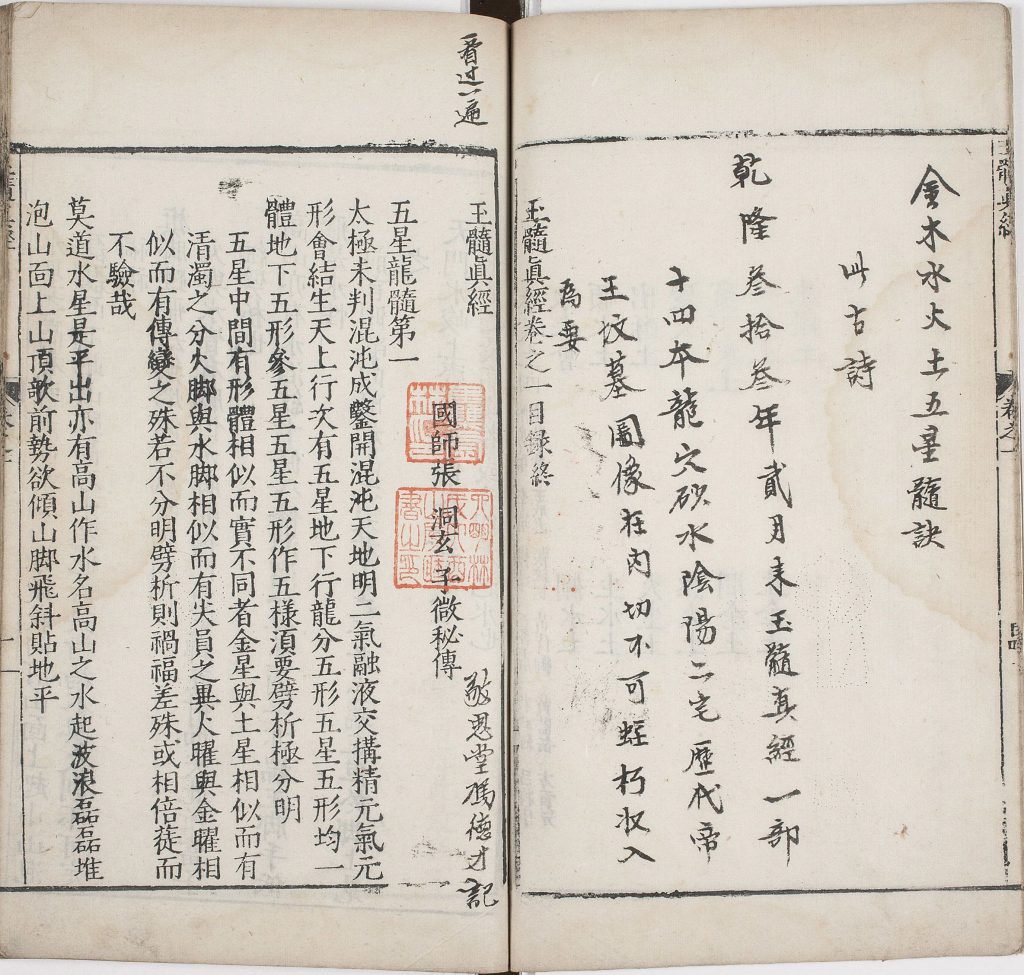 玉髓眞經
卷之一
金木水火土五星髓訣
此古詩
乾隆叁拾叁年貳月來玉髓真經一部
十四本龍穴砂水陰陽二宅歷代帝
王坟墓圖像在內切不可蛀朽收入
為要
玉髓眞經卷之一目録終
看过一遍
玉髓眞經
國師張 洞玄 子微秘傳
敬思堂馮德才記
五星龍髓第一
太極未判混沌成鑿開混沌天地明二氣融液交搆精元氣元
形會結生天上行次有五星地下行龍分五形五星五形均一
體地下五形參五星五星五形作五樣湏要劈析極分明
五星中間有形體相似而實不同者金星與土星相似而有
清濁之分火脚與水脚相似而有尖員之異火曜與金曜相
似而有傳變之殊若不分明劈析則禍福差殊或相倍蓰而
不驗哉
莫道水星是平出亦有高山作水名高山之水起波浪磊磊堆
泡山靣上山頂欹前勢欲傾山脚飛斜貼地平